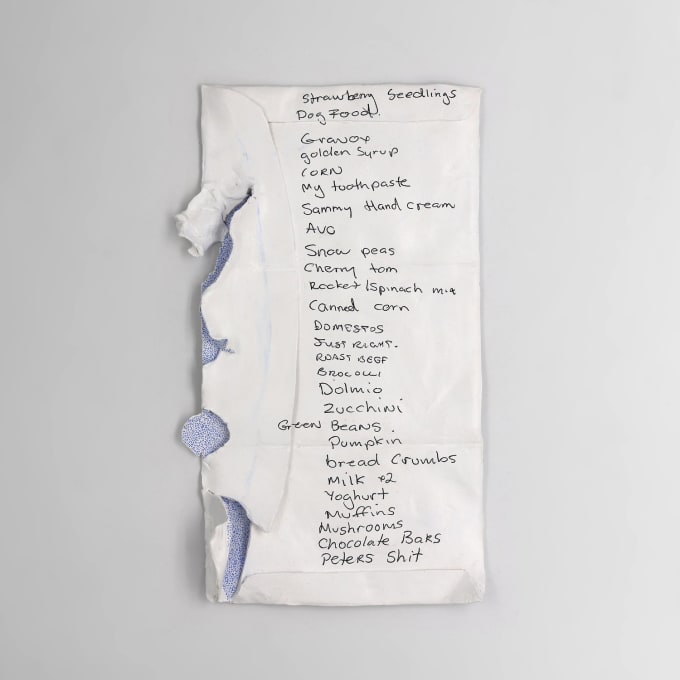 Strawberry Seedlings
Dog Food.
Gravox
golden Syrup
CORN
My toothpaste
Sammy Hand cream
Avo
Snow peas
Cherry tom
Rocket/Spinach mix
Canned corn
DOMESTOS
JUST RIGHT.
ROAST BEEF
BROCOLLI
Dolmio
Zucchini
Green Beans.
Pumpkin
bread Crumbs
Milk x2
Yoghurt
Muffins
Mushrooms
Chocolate Bars
Peters Shit